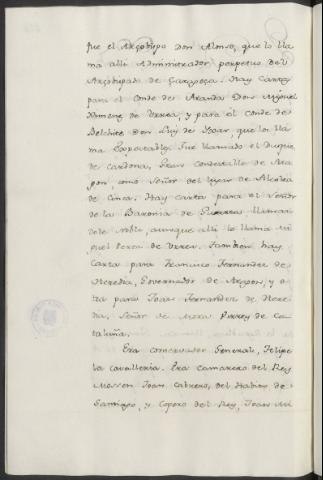 fue el Arçobispo Don Alonso, que lo lla
ma alli Administrador perpetuo del
Arçobispado de Zaragoça. Hay Carta
para el Conde de Aranda Don Miguel
Ximenez de Urrea, y para el conde de
Belchite Don Luis de Ixar, que lo lla
ma Espectable. Fue llamado el Duque
de Cardona, Gran Condestable de Ara
gon, como Señor del lugar de Alcolea
de Cinca. Hay carta para el Señor
de la Baronia de llaman
dole Noble, aunque alli lo llama Mi
guel Perez de Urrea. Tambien hay
Carta para Francisco Fernandez de
Heredia, Governador de Aragon, y o
tra para Joan Fernandez de Here
dia, Señor de Mora Virrey de Ca
taluña.
Era conservador General, Felipe
la Cavalleria. Era Camarero del Rey
Mossen Joan Cabrero, del Habito de
Santiago, y Copero del Rey, Joan Mi